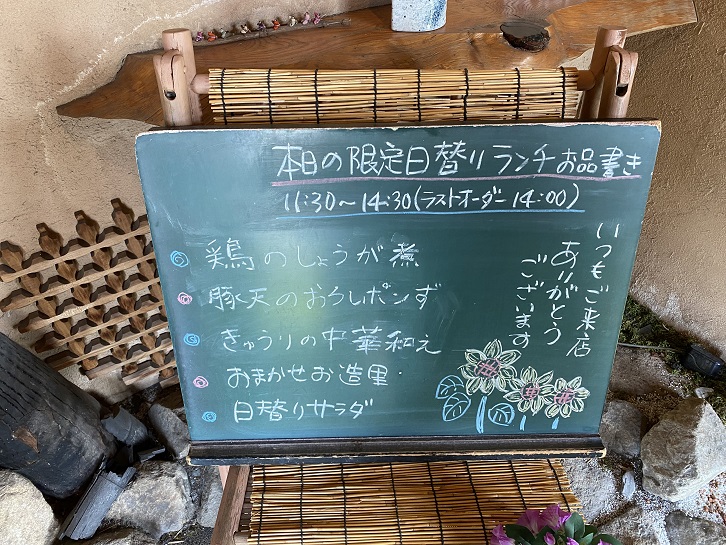 本日の限定日替りランチお品書き
11:30〜14:30(ラストオーダー14:00)
鶏のしょうが煮
豚天のおろしポンず
きゅうりの中華和え
おまかせお造里
日替りサラダ
いつもご来店
ありがとう
ございます